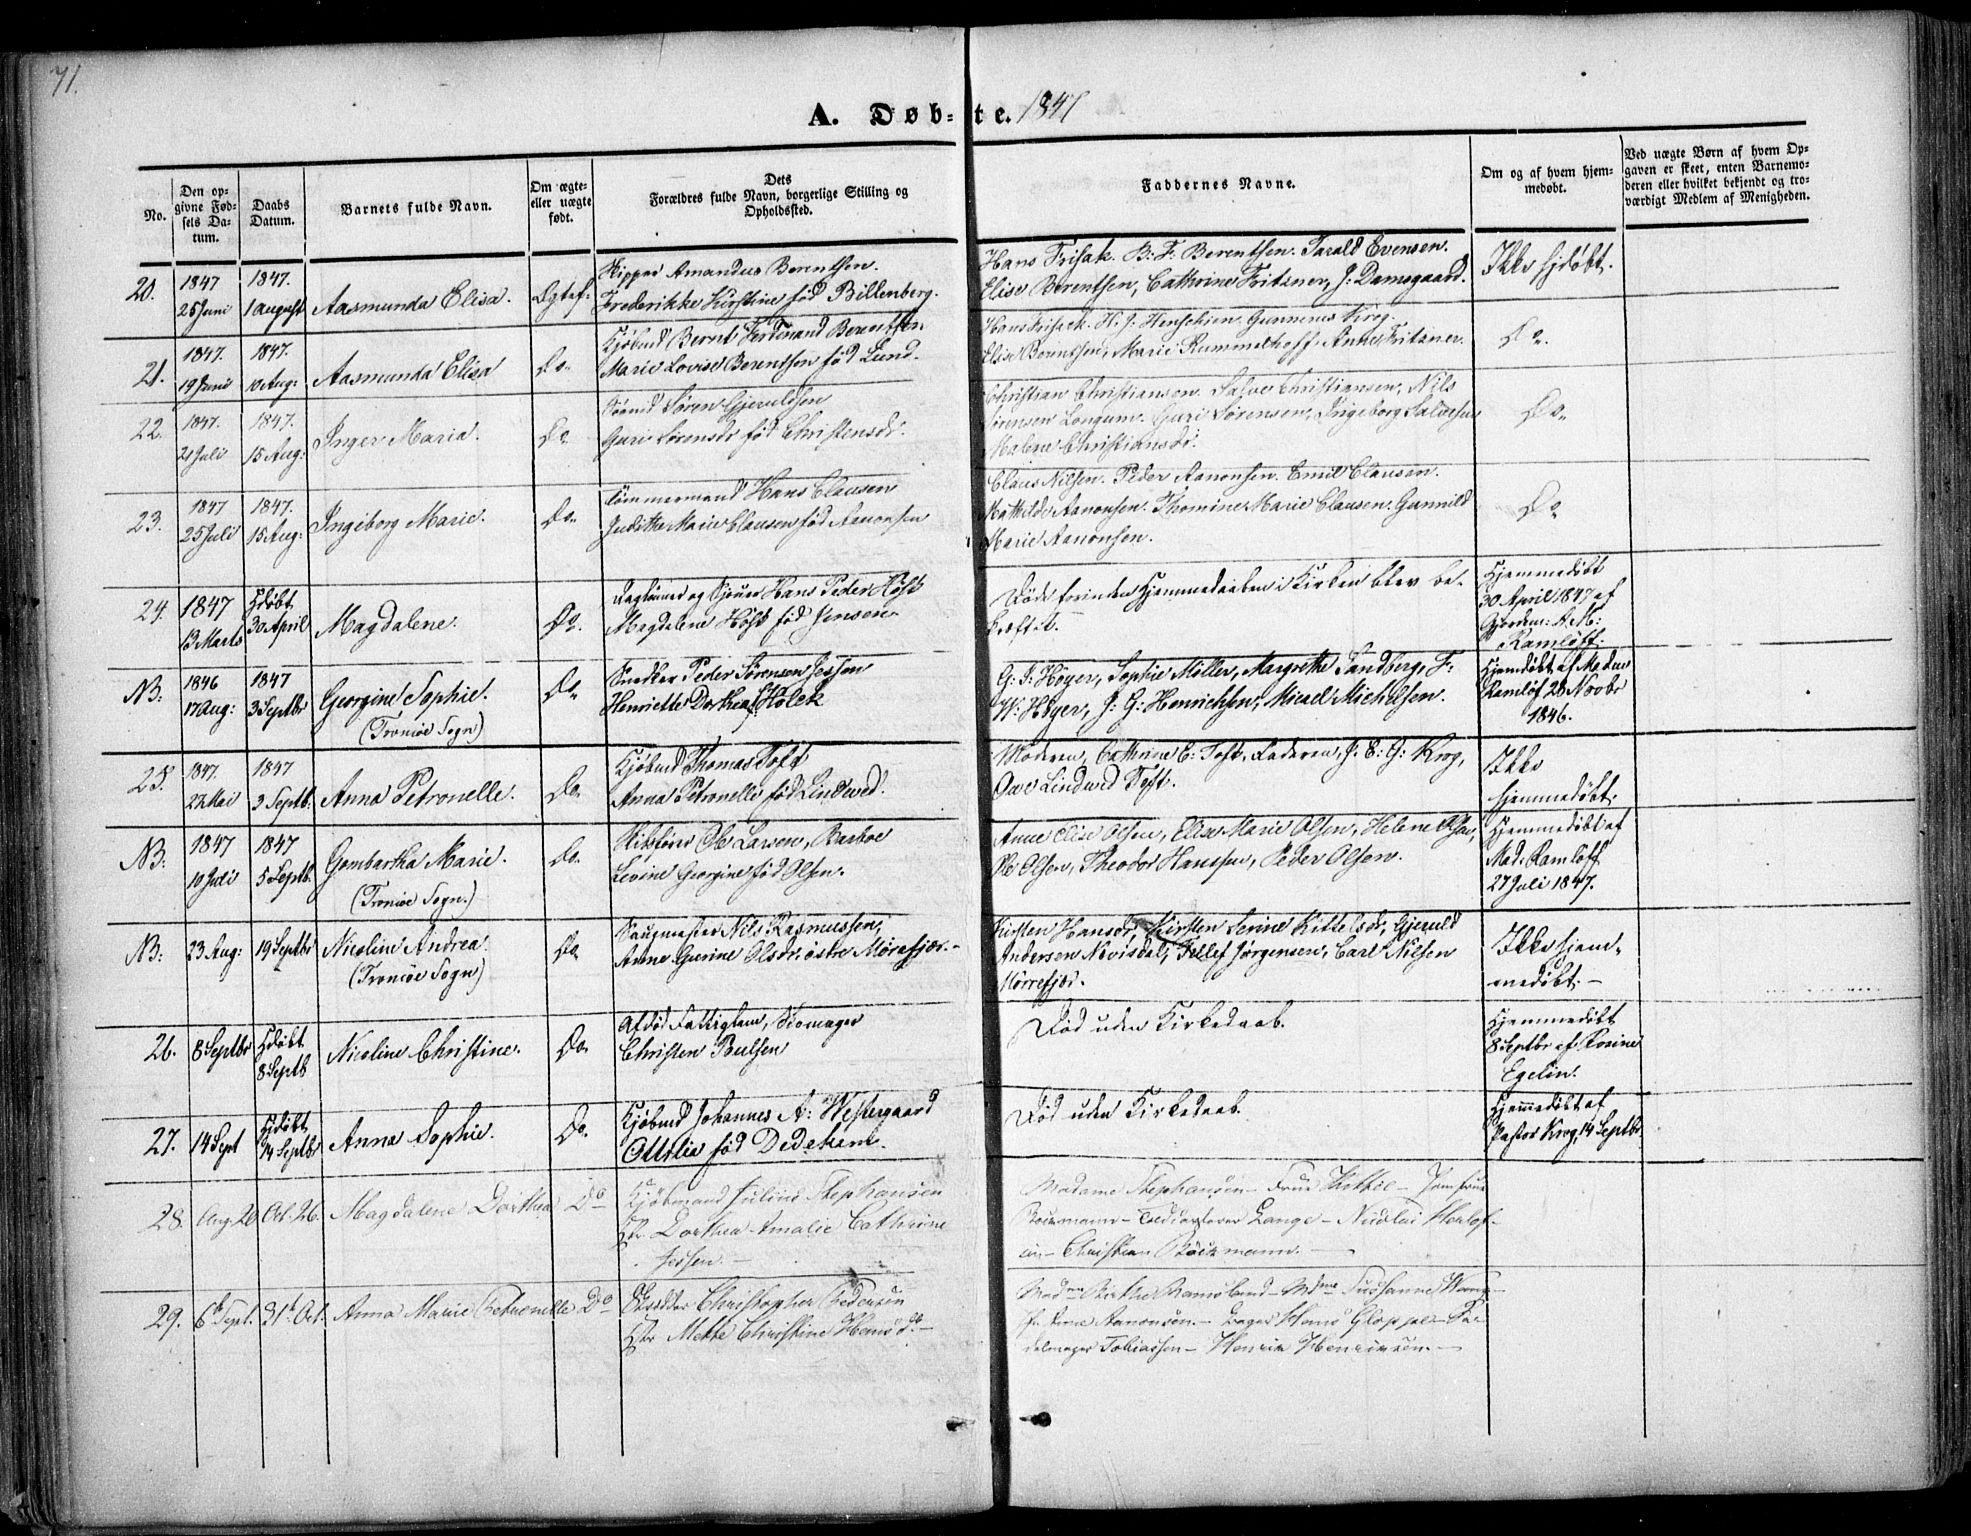 71.
A. Døb-te. 1847
No.
Den op-
givne Fød-
sels Da-
tum.
Daabs
Datum.
Barnets fulde Navn.
Om ægte-
eller uægte
født.
Dets
Forældres fulde Navn, borgerlige Stilling og
Opholdssted.
Faddernes Navne.
Om og af hvem hjem-
medøbt.
Ved uægte Børn af hvem Op-
gaven er skeet, enten Barnemo-
deren eller hvilket bekjendt og tro-
værdigt Medlem af Menigheden.
20.
1847
25 Juni
1847.
1 August
Aasmunda Elisa.
Ægtef:
Skipper Amandus Berentsen.
Frederikke Kirstine fød Billenberg.
Hans Frisak. B: F. Berentsen. Tarald Evensen.
Elise Berentsen, Cathrine Fritzner, J: Damsgaard.
Ikke hjdøbt.
21.
1847.
19 Juni
1847.
10 Aug:
Aasmunda Elisa
Do.
Kjøbmd Bernt Ferdinand Berentsen
Marie Lovise Berentsen fød Lund.
Hans Frisack. H. J: Henschien. Gunnerus Krog.
Elise Berentsen, Marie Rummelhoff. Anne Fritzner.
Do.
22.
1847.
21 Juli
1847.
15 Aug:
Inger Maria.
Do
Søren Gjeruldsen
Guri Sørensdr fød Christensdr.
Christian Christiansen. Salve Christiansen, Nils
Sørensen Longum. Guri Sørensen, Ingeborg Salvesen
Malene Christiansdr.
Do.
23.
1847
25 Juli
1847.
15 Aug:
Ingeborg Marie.
Do.
Tømmermand Hans Clausen
Judithe Marie Clausen fød Aanonsen
Claus Nilsen. Peder Aanonsen. Emil Clausen.
Mathilde Aanonsen. Thomine Marie Clausen. Gunnild
Marie Aanonsen.
Do
24.
1847
13 Marts
Hdøbt
30 April
Magdalene.
Do.
Daglønner og Hans Peder Høst
Magdalene Høst fød Jensen
Døde forinden Hjemmedaaben i Kirken blev be-
kræftet.
Hjemmedøbt
30 April 1847 af
Gjordem: A. M:
Ramløff.
NB:
1846
17 Aug:
1847
3 Septbr
Georgine Sophie.
(Tromøe Sogn)
Do.
Snedker Peder Sørensen Jessen
Henriette Dorthea f. Holck
G. J: Høyer, Sophie Møller, Margrethe Sandberg, F:
W: Høyer, J: G: Henrichsen, Micael Michelsen.
Hjemdøbt af Madme
Ramløf 28 Novbr
1846.
25.
1847.
27 Mai
1847
3 Septb:
Anna Petronelle.
Do.
Kjøbmd Thomas Toft
Anna Petronelle fød Lindeved.
Moderen, Cathrine E: Toft, Faderen, J. E: G: Krog,
Owe Lindwed Toft.
Ikke
hjemmedøbt.
NB:
1847
10 Juli
1847
5 Septb.
Gombartha Marie.
(Tromøe Sogn.)
Do.
Ole Larsen, Rasboe
Levine Georgine fød Olsen.
Anne Elise Olsen, Elise Marie Olsen, Helene Olsen,
Ole Olsen, Theodor Hanssen, Peder Olsen.
Hjemmedøbt af
Mad. Ramløff
27 Juli 1847.
NB:
23 Aug:
19 Septbr
Nicoline Andrea.
(Tromøe Sogn)
Do
Nils Rasmussen,
Anne Gurine Olsdr, østre Mørefjær.
Kirsten Hansdr, Kirsten Serine Kittelsdr, Gjeruld
Andersen Nevisdal, Tellef Jørgensen, Carl Nilsen
Mørrefjær.
Ikke hjem-
medøbt. -
26.
8 Septbr
Hdøbt
8 Septb
Nicoline Christine.
Do.
Afdød Fattiglem, Skomager
Christen Poulsen
Død uden Kirkedaab.
Hjemmedøbt
8 Septbr af Rosine
Egelin.
27.
14 Sept
Hdøbt
14 Septbr
Anna Sophie.
Do.
Kjøbmd Johannes A: Westergaard
Ottilia fød Dedekam.
Død uden Kirkedaab.
Hjemmedøbt af
Pastor Krog, 14 Septbr
28.
Aug. 26
Oct. 26.
Magdalene Dorthea
Do
Kjøbmand Julius Stephansen
Dorthea Amalie Cathrine
Jessen. -
Madame Stephansen - Frue Kittoe - Jomfrue
Bøckmann - Lange - Nicolai Herlof-
sen - Christian Bøckmann. -
29.
6te Sept.
31te Oct.
Anna Marie Petronille
Do
Christopher Pedersen
Mette Christine Hansd. -
Madme Birthe Ramsland - Mdme Susanne Wang -
Aanonsen. - Hans Gloppe - Sa-
delmager Tobiassen - Henrik Henriksen. -